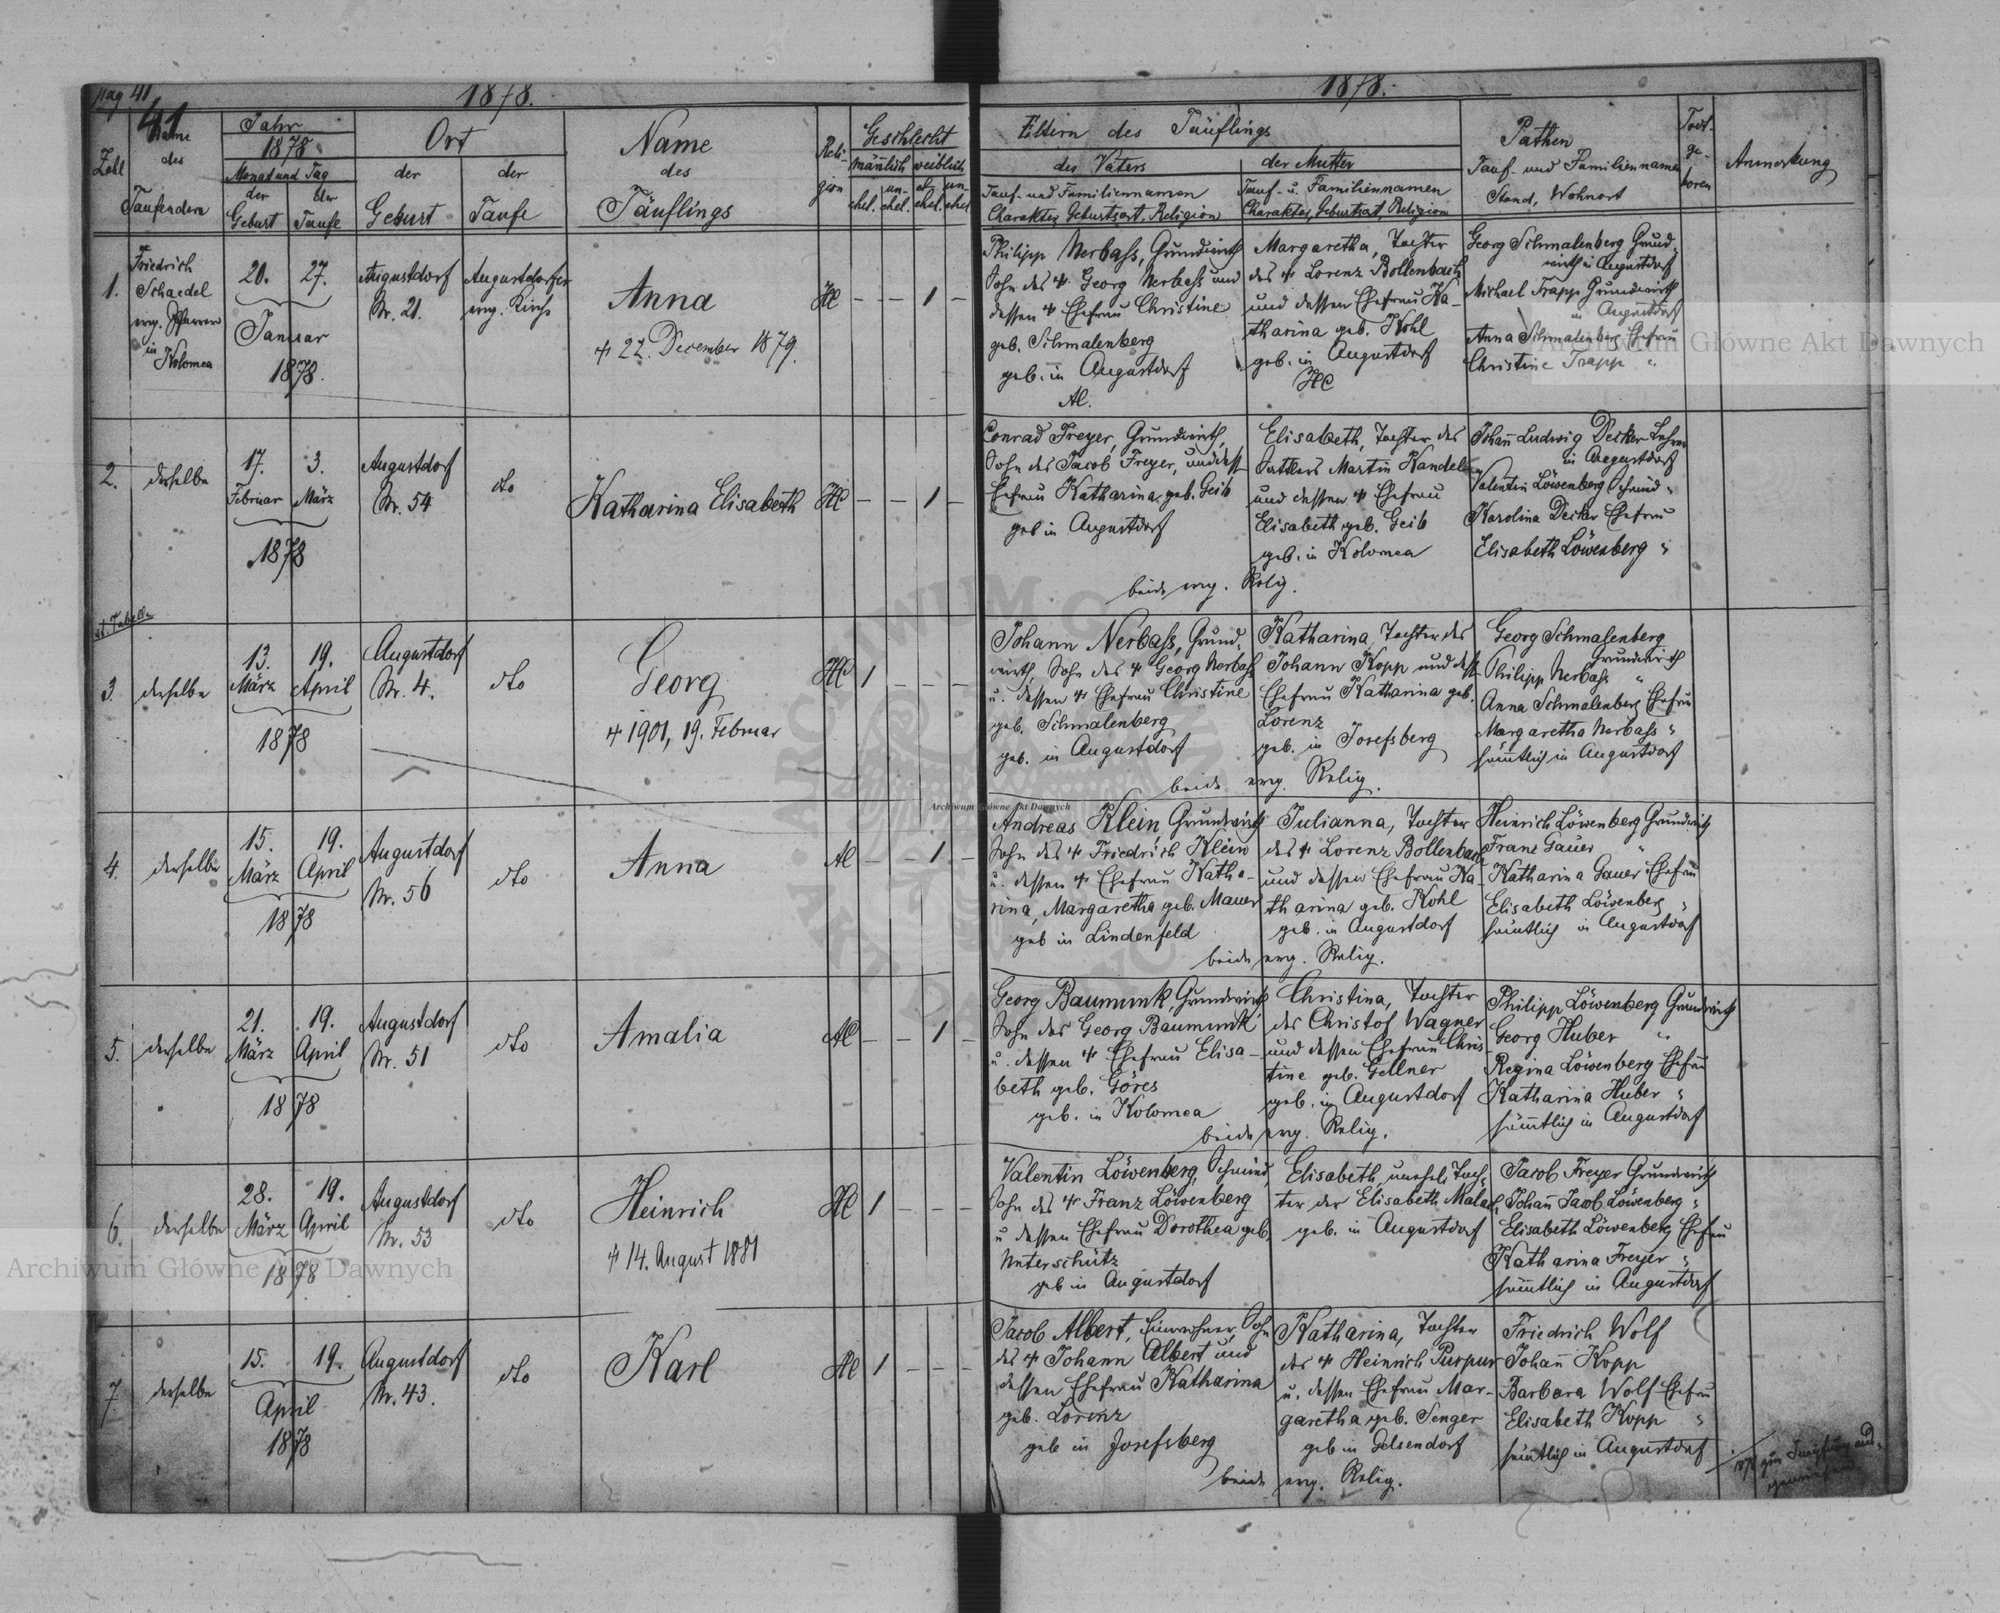 pag 41
1878.
1878.
41
Zahl
Name
des
Taufenden
Jahr
1878.
Monat und Tag
der
Geburt
der
Taufe
Ort
der
Geburt
der
Taufe
Name
des
Täuflings
Reli-
gion
Geschlecht
mänlich
weiblich
ehel.
un-
ehel.
ehel.
un-
ehel
Eltern des Täuflings
des Vaters
Tauf- und Familiennamen
Charakter, Geburtsort, Religion
der Mutter
Tauf- u. Familiennamen
Charakter, Geburtsort, Religion
Pathen
Tauf- und Familienname
Stand, Wohnort
Todt-
ge-
boren
Anmerkung
1.
Friedrich
Schaedel
evg. Pfarrer
in
Kolomea
20.
27.
Januar
1878.
Augustdorf
Nr. 21.
Augustdorfer
evg. Kirche
Anna
+ 22. December 1879.
HC
– – 1 –
Philipp Nerbass, Grundwirth
Sohn des + Georg Nerbass und
dessen + Ehefrau Christine
geb. Schmalenberg
geb. in Augustdorf
Margaretha, Tochter
des + Lorenz Bollenbach
und dessen Ehefrau Ka-
tharina geb. Kohl
geb. in Augustdorf
HC
Georg Schmalenberg Grund-
wirth in Augustdorf
Michael Trapp Grundwirth
in Augustdorf
Anna Schmalenberg Ehefrau
Christine Trapp "
2.
derselbe
17.
Februar
3.
März
1878
Augustdorf
Nr. 54
dto
Katharina Elisabeth
HC
– – 1 –
Conrad Freyer, Grundwirth,
Sohn des Jacob Freyer, und dess.
Ehefrau Katharina, geb. Geib
geb in Augustdorf
Elisabeth, Tochter des
Sattlers Martin Kandel
und dessen + Ehefrau
Elisabeth geb. Geib
geb. in Kolomea
beide evg. Relig.
Johañ Ludwig Decker Lehrer
in Augustdorf
Valentin Löwenberg Schmid "
Karolina Decker Ehefrau
Elisabeth Löwenberg "
3.
derselbe
13.
März
19.
April
1878
Augustdorf
Nr. 4.
dto
Georg
+ 1901, 19. Februar
HC
1 – – –
Johann Nerbass, Grund-
wirth, Sohn des + Georg Nerbass
u. dessen + Ehefrau Christine
geb. Schmalenberg
geb. in Augustdorf
Katharina, Tochter des
Johann Kopp und dess.
Ehefrau Katharina geb.
Lorenz
geb. in Josefsberg
beide evg. Relig.
Georg Schmalenberg
Grundwirth
Philipp Nerbass "
Anna Schmalenberg Ehefrau
Margaretha Nerbass "
säm̃tlich in Augustdorf
4.
derselbe
15.
März
19.
April
1878
Augustdorf
Nr. 56
dto
Anna
– – 1 –
Andreas Klein, Grundwirth
Sohn des + Friedrich Klein
u. dessen + Ehefrau Katha-
rina, Margaretha geb. Mauer
geb in Lindenfeld
Julianna, Tochter
des + Lorenz Bollenbach
und dessen Ehefrau Ka-
tharina geb. Kohl
geb. in Augustdorf
beide evg. Relig.
Heinrich Löwenberg Grundwirth
Franz Gauer "
Katharina Gauer Ehefrau
Elisabeth Löwenberg "
säm̃tlich in Augustdorf
5.
derselbe
21.
März
19.
April
1878
Augustdorf
Nr. 51
dto
Amalia
– – 1 –
Georg Baumunk, Grundwirth
Sohn des Georg Baumunk
u. dessen + Ehefrau Elisa-
beth geb. Göres
geb. in Kolomea
Christina, Tochter
des Christof Wagner
und dessen Ehefrau Chris-
tine geb. Gellner
geb. in Augustdorf
beide evg. Relig.
Philipp Löwenberg Grundwirth
Georg Huber "
Regina Löwenberg Ehefrau
Katharina Huber "
säm̃tlich in Augustdorf
6.
derselbe
28.
März
19.
April
1878
Augustdorf
Nr. 53
dto
Heinrich
+ 14. August 1881
HC
1 – – –
Valentin Löwenberg, Schmied,
Sohn des + Franz Löwenberg
u. dessen Ehefrau Dorothea geb.
Unterschütz
geb in Augustdorf
Elisabeth, unehel. Toch-
ter der Elisabeth
geb. in Augustdorf
Jacob Freyer Grundwirth
Johañ Jacob Löwenberg "
Elisabeth Löwenberg Ehefrau
Katharina Freyer "
säm̃tlich in Augustdorf
7
derselbe
15.
19.
April
1878
Augustdorf
Nr. 43.
dto
Karl
HC
1 – – –
Jacob Albert, Einwohner, Sohn
des + Johann Albert und
dessen Ehefrau Katharina
geb. Lorenz
geb in Josefsberg
Katharina, Tochter
des + Heinrich Purpur
u. dessen Ehefrau Mar-
garetha geb. Senger
geb in Gelsendorf
beide evg. Relig.
Friedrich Wolf
Johañ Kopp
Barbara Wolf Ehefrau
Elisabeth Kopp "
säm̃tlich in Augustdorf
zur Impfung aus-
gewiesen
Archiwum Główne Akt Dawnych
Archiwum Główne Akt Dawnych
Archiwum Główne Akt Dawnych